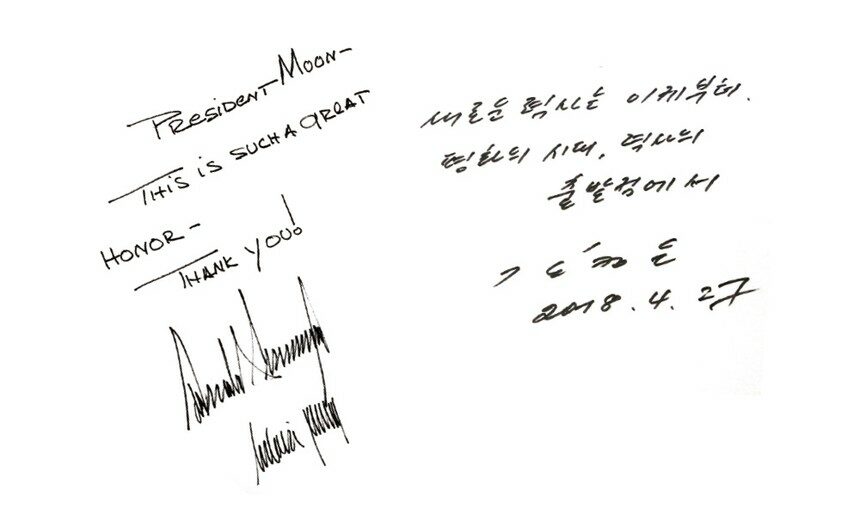 PRESIDENT MOON-
THIS IS SUCH A GREAT
HONOR-
THANK YOU!
새로운 력사는 이제부터.
평화의 시대, 력사의
출발점에서
김정은
2018. 4. 27